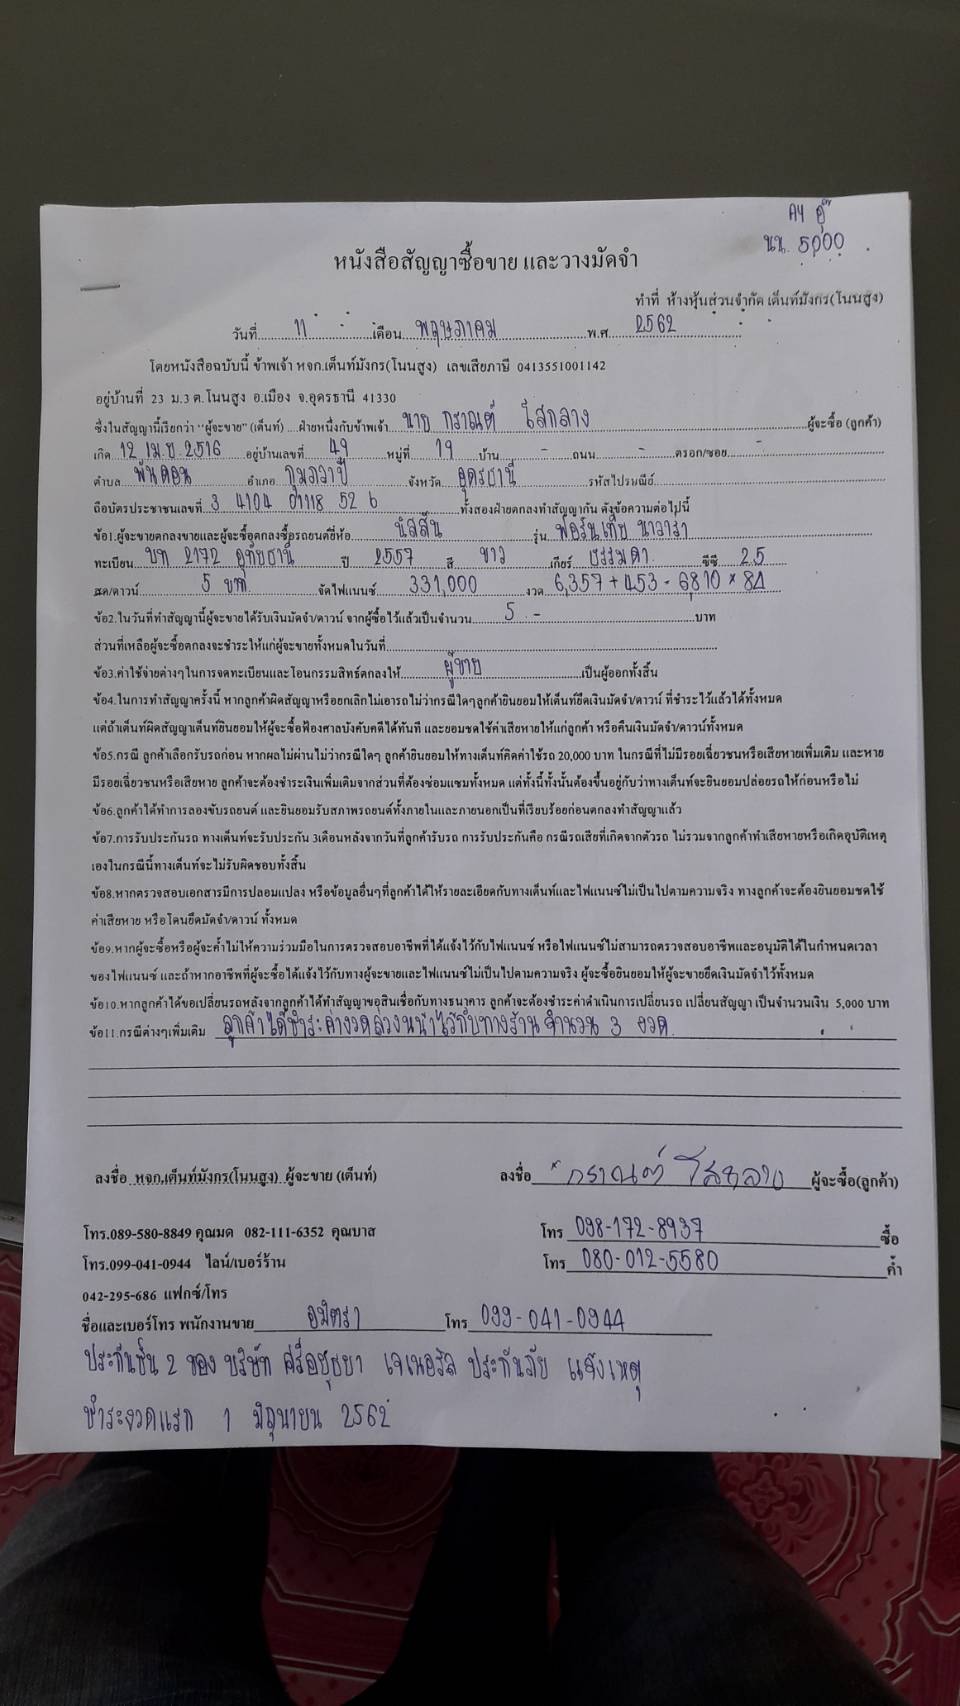 นน. 5,000
หนังสือสัญญาซื้อขาย และวางมัดจำ
ทำที่ ห้างหุ้นส่วนจำกัด เต็นท์มังกร(โนนสูง)
วันที่ 11 เดือน พฤษภาคม พ.ศ 2562
โดยหนังสือฉบับนี้ ข้าพเจ้า หจก.เต็นท์มังกร(โนนสูง) เลขเสียภาษี 0413551001142
อยู่บ้านที่ 23 ม.3 ต.โนนสูง อ.เมือง จ.อุดรธานี 41330
ซึ่งในสัญญานี้เรียกว่า "ผู้จะขาย" (เต็นท์) ....ฝ่ายหนึ่งกับข้าพเจ้า นาย กราณต์ ไสกลาง ผู้จะซื้อ (ลูกค้า)
เกิด 12 เม.ย. 2516 อยู่บ้านเลขที่ 49 หมู่ที่ 19 บ้าน - ถนน - ตรอก/ซอย -
ตำบล พันดอน อำเภอ กุมภวาปี จังหวัด อุดรธานี รหัสไปรษณีย์
ถือบัตรประชาชนเลขที่ 3 4104 01118 52 6 ทั้งสองฝ่ายตกลงทำสัญญากัน ดังข้อความต่อไปนี้
ข้อ1.ผู้จะขายตกลงขายและผู้จะซื้อตกลงซื้อรถยนต์ยี่ห้อ นิสสัน รุ่น ฟอร์นเทีย นาวารา
ทะเบียน บท 2172 อุทัยธานี ปี 2557 สี ขาว เกียร์ ธรรมดา ซีซี 2.5
สด/ดาวน์ 5 บาท จัดไฟแนนซ์ 331,000 งวด 6,357 + 453 - 6810 × 84
ข้อ2.ในวันที่ทำสัญญานี้ผู้จะขายได้รับเงินมัดจำ/ดาวน์ จากผู้ซื้อไว้แล้วเป็นจำนวน 5 - บาท
ส่วนที่เหลือผู้จะซื้อตกลงจะชำระให้แก่ผู้จะขายทั้งหมดในวันที่
ข้อ3.ค่าใช้จ่ายต่างๆในการจดทะเบียนและโอนกรรมสิทธิ์ตกลงให้ ผู้ขาย เป็นผู้ออกทั้งสิ้น
ข้อ4.ในการทำสัญญาครั้งนี้ หากลูกค้าผิดสัญญาหรือยกเลิกไม่เอารถ ไม่ว่ากรณีใดๆลูกค้ายินยอมให้เต็นท์ยึดเงินมัดจำ/ดาวน์ ที่ชำระไว้แล้วได้ทั้งหมด
แต่ถ้าเต็นท์ผิดสัญญาเต็นท์ยินยอมให้ผู้จะซื้อฟ้องศาลบังคับคดีได้ทันที และยอมชดใช้ค่าเสียหายให้แก่ลูกค้า หรือคืนเงินมัดจำ/ดาวน์ทั้งหมด
ข้อ5.กรณี ลูกค้าเลือกรับรถก่อน หากผลไม่ผ่านไม่ว่ากรณีใดๆ ลูกค้ายินยอมให้ทางเต็นท์คิดค่าใช้รถ 20,000 บาท ในกรณีที่ไม่มีรอยเฉี่ยวชนหรือเสียหายเพิ่มเติม และหาย
มีรอยเฉี่ยวชนหรือเสียหาย ลูกค้าจะต้องชำระเงินเพิ่มเติมจากส่วนที่ต้องซ่อมแซมทั้งหมด แต่ทั้งนี้ทั้งนั้นต้องขึ้นอยู่กับว่าทางเต็นท์จะยินยอมปล่อยรถให้ก่อนหรือไม่
ข้อ6.ลูกค้าได้ทำการลองขับรถยนต์ และยินยอมรับสภาพรถยนต์ทั้งภายในและภายนอกเป็นที่เรียบร้อยก่อนตกลงทำสัญญาแล้ว
ข้อ7.การรับประกันรถ ทางเต็นท์จะรับประกัน 3เดือนหลังจากวันที่ลูกค้ารับรถ การรับประกันคือ กรณีรถเสียที่เกิดจากตัวรถ ไม่รวมจากลูกค้าทำเสียหายหรือเกิดอุบัติเหตุ
เองในกรณีนี้ทางเต็นท์จะไม่รับผิดชอบทั้งสิ้น
ข้อ8.หากตรวจสอบเอกสารมีการปลอมแปลง หรือข้อมูลอื่นๆที่ลูกค้าได้ให้รายละเอียดกับทางเต็นท์และไฟแนนซ์ไม่เป็นไปตามความจริง ทางลูกค้าจะต้องยินยอมชดใช้
ค่าเสียหาย หรือโดนยึดมัดจำ/ดาวน์ ทั้งหมด
ข้อ9.หากผู้จะซื้อหรือผู้จะค้ำไม่ให้ความร่วมมือในการตรวจสอบอาชีพที่ได้แจ้งไว้กับไฟแนนซ์ หรือไฟแนนซ์ไม่สามารถตรวจสอบอาชีพและอนุมัติได้ในกำหนดเวลา
ของไฟแนนซ์ และถ้าหากอาชีพที่ผู้จะซื้อได้แจ้งไว้กับทางผู้จะขายและไฟแนนซ์ไม่เป็นไปตามความจริง ผู้จะซื้อยินยอมให้ผู้จะขายยึดเงินมัดจำไว้ทั้งหมด
ข้อ10.หากลูกค้าได้ขอเปลี่ยนรถหลังจากลูกค้าได้ทำสัญญาขอสินเชื่อกับทางธนาคาร ลูกค้าจะต้องชำระค่าดำเนินการเปลี่ยนรถ เปลี่ยนสัญญา เป็นจำนวนเงิน 5,000 บาท
ข้อ11.กรณีต่างๆเพิ่มเติม ลูกค้าได้ชำระค่างวดล่วงหน้าไว้กับทางร้าน จำนวน 3 งวด
ลงชื่อ หจก.เต็นท์มังกร(โนนสูง) ผู้จะขาย (เต็นท์) ลงชื่อ กราณต์ ไสกลาง ผู้จะซื้อ(ลูกค้า)
โทร.089-580-8849 คุณมด 082-111-6352 คุณบาส โทร 098-172-8937 ซื้อ
โทร.099-041-0944 ไลน์/เบอร์ร้าน โทร 080-012-5580 ค้ำ
042-295-686 แฟกซ์/โทร
ชื่อและเบอร์โทร พนักงานขาย อมิตรา โทร 099-041-0944
ประกันชั้น 2 ของ บริษัท ศรีอยุธยา เจเนอรัล ประกันภัย แจ้งเหตุ
ชำระงวดแรก 1 มิถุนายน 2562